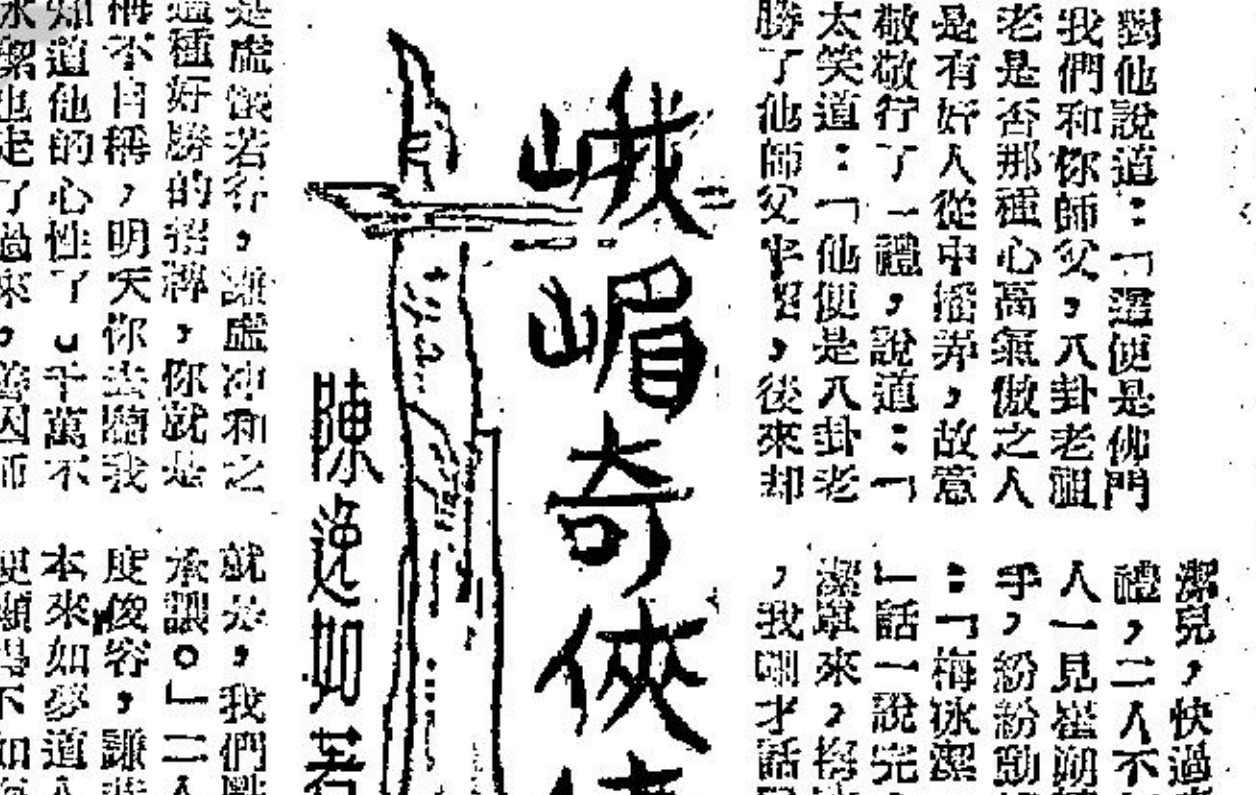 對他說道：「這便是佛門
我們和你師父，八卦老祖
老是否那種心高氣傲之人
是有奸人從中搖弄，故意
敬敬行了一禮，說道：「
太笑道：「他便是八卦老
勝了他師父半招，後來却
潔兒，快過
禮，二人不
人一見崔
手，紛紛
：「梅冰潔
」話一說完
來，梅
，我剛才話
峨嵋奇俠
陳逸如
是虛懷若行，謙虛冲和之
這種好勝的招牌，你就是
稱不自稱，明天你去聽我
知道他的心性了。千萬不
冰潔也走了過來，善因師
就是，我們
承讓。」二人
度俊容，謙
本來如夢道人
便顯得不如